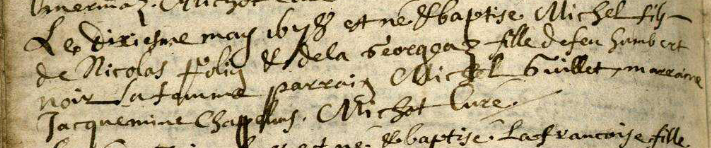 Michot Curé
Le dixiesme may 1678 est né & baptisé Michel fils
de Nicolas & dela Georgea fille de feu humbert
noir sa femme parrain Michel Guillet, marraine
Jacquemine Chappelus. Michot Curé.
est né & baptisé. La francoise fille